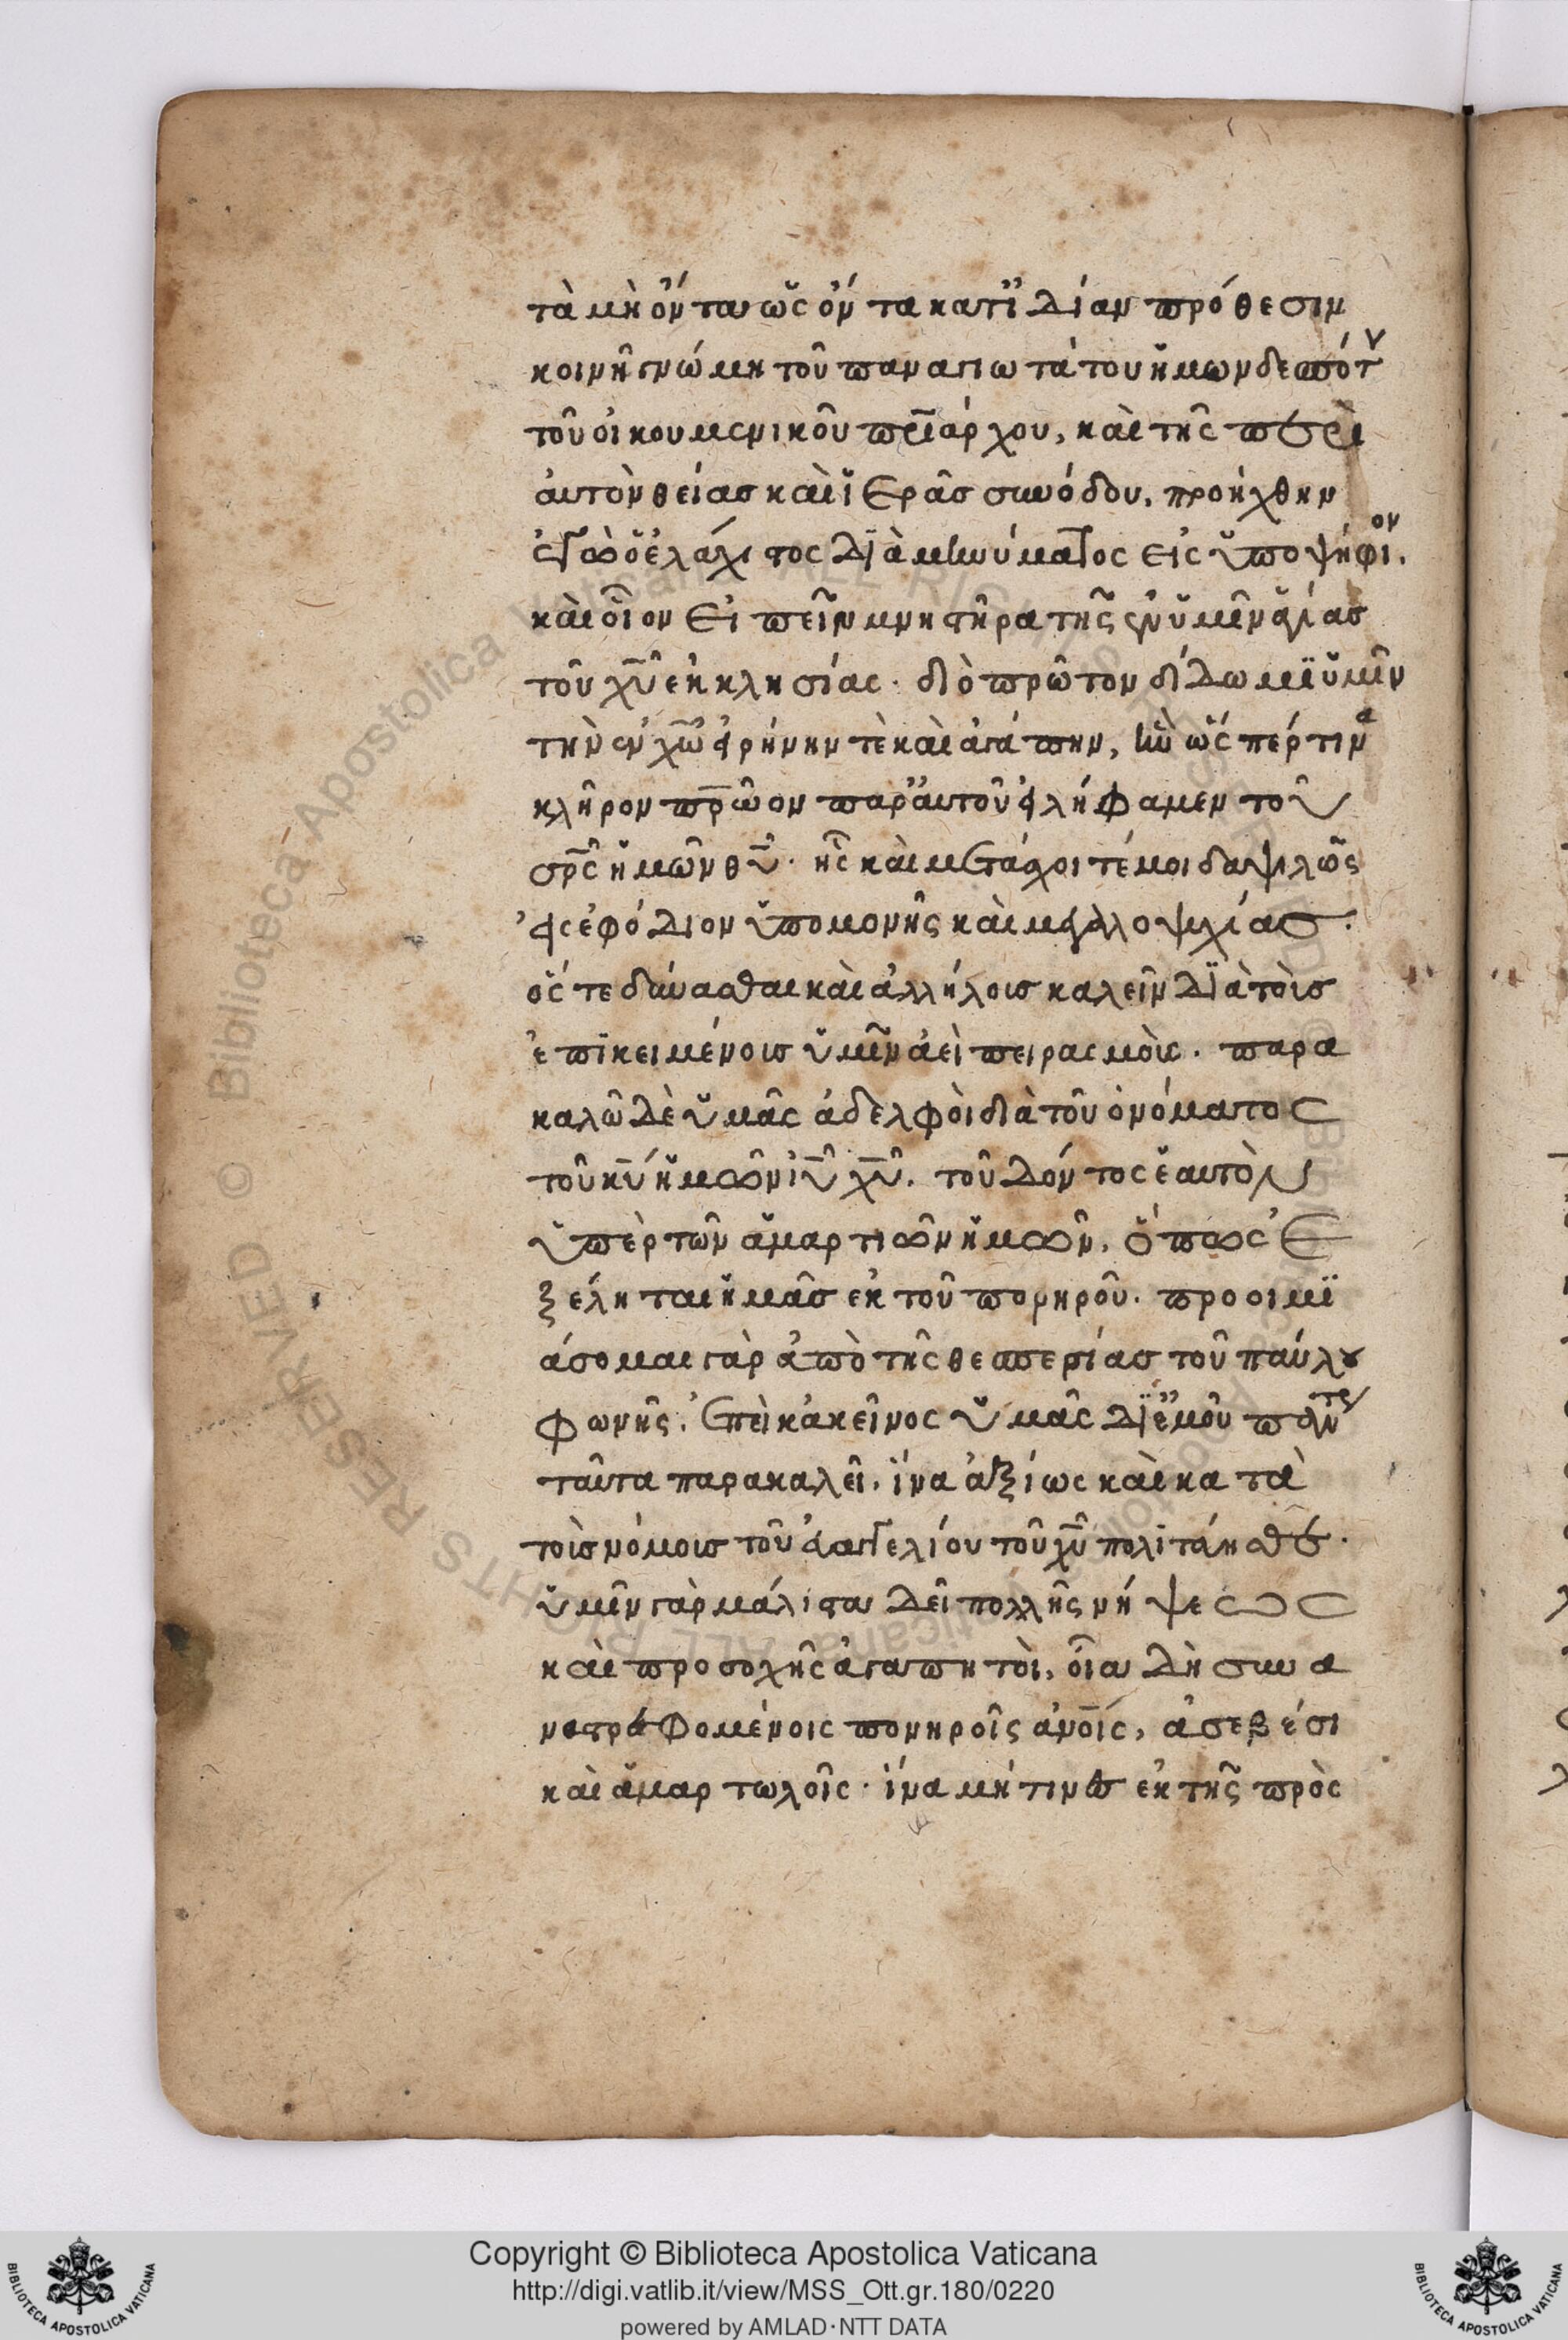 τὰ μὴ ὄντα ὡς ὄντα κατ' ἰδίαν πρόθεσιν
κοινῇ γνώμη τοῦ παναγιωτάτου ἡμων δεσπότ
τοῦ οἰκουμενικοῦ πρ̅ιάρχου, καὶ τῆς περὶ
ἀυτὸν θείας καὶ ἱερᾶς συνόδου, προήχθην
ἐγὼ ὁ ἐλάχιστος διὰ μηνύματος εἰς ὑποψήφιον.
καὶ οἷον εἰπεῖν μνηστῆρα τῆς ἐν ὑμῖν ἁγίας
τοῦ χ̅υ̅ ἐκκλησίας. διὸ πρῶτον δίδωμι ὑμῖν
τὴν ἐν χ̅ω̅ εἰρήνην τὲ καὶ ἀγάπην, ἣν ὥς πέρ τινα
κλῆρον πρ̅ῶον παρ' ἀυτοῦ εἰλήφαμεν τοῦ
σρ̅ς ἡμῶν θ̅υ̅. ἧς καὶ μετάχοιτέ μοι δαψιλῶς
εἰς ἐφόδιον ὑπομονῆς καὶ μεγαλοψυχίας.
ὅς τε δύνασθαι καὶ ἀλλήλοις καλεῖν διὰ τοὶς
ἐπικειμένοις ὑμῖν ἀεὶ πειρασμοὶς. παρα
καλῶ δὲ ὑμᾶς ἀδελφοὶ διὰ τοῦ ὀνόματος
τοῦ κ̅υ̅ ἡμῶν ι̅υ̅ χ̅υ̅. τοῦ δόντος ἑαυτὸν
ὑπὲρ τῶν ἁμαρτιῶν ἡμῶν, ὅπως ἐ
ξέληται ἡμᾶς ἐκ τοῦ πονηροῦ. προοιμι
άσομαι γὰρ ἀπὸ τῆς θεσπεσίας τοῦ παύλου
φωνῆς. ἐπὶ κἀκεῖνος ὑμᾶς δι' ἐμοῦ πάντες
ταῦτα παρακαλεῖ. ἵνα ἀξίως καὶ κατὰ
τοὶς νόμοις τοῦ εὐαγγελίου τοῦ χ̅υ̅ πολιτεύησθε.
ὑμῖν γὰρ μάλιστα δεῖ πολλῆς νήψεως
καὶ προσοχῆς ἀγαπητοὶ, οἷα δὴ συνα
ναστρεφομένοις πονηροῖς ἀν̅οις, ἀσεβέσι
καὶ ἁμαρτωλοῖς. ἵνα μή τινος ἐκ τῆς πρὸς
Copyright © Biblioteca Apostolica Vaticana
http://digi.vatlib.it/view/MSS_Ott.gr.180/0220
powered by AMLAD·NTT DATA